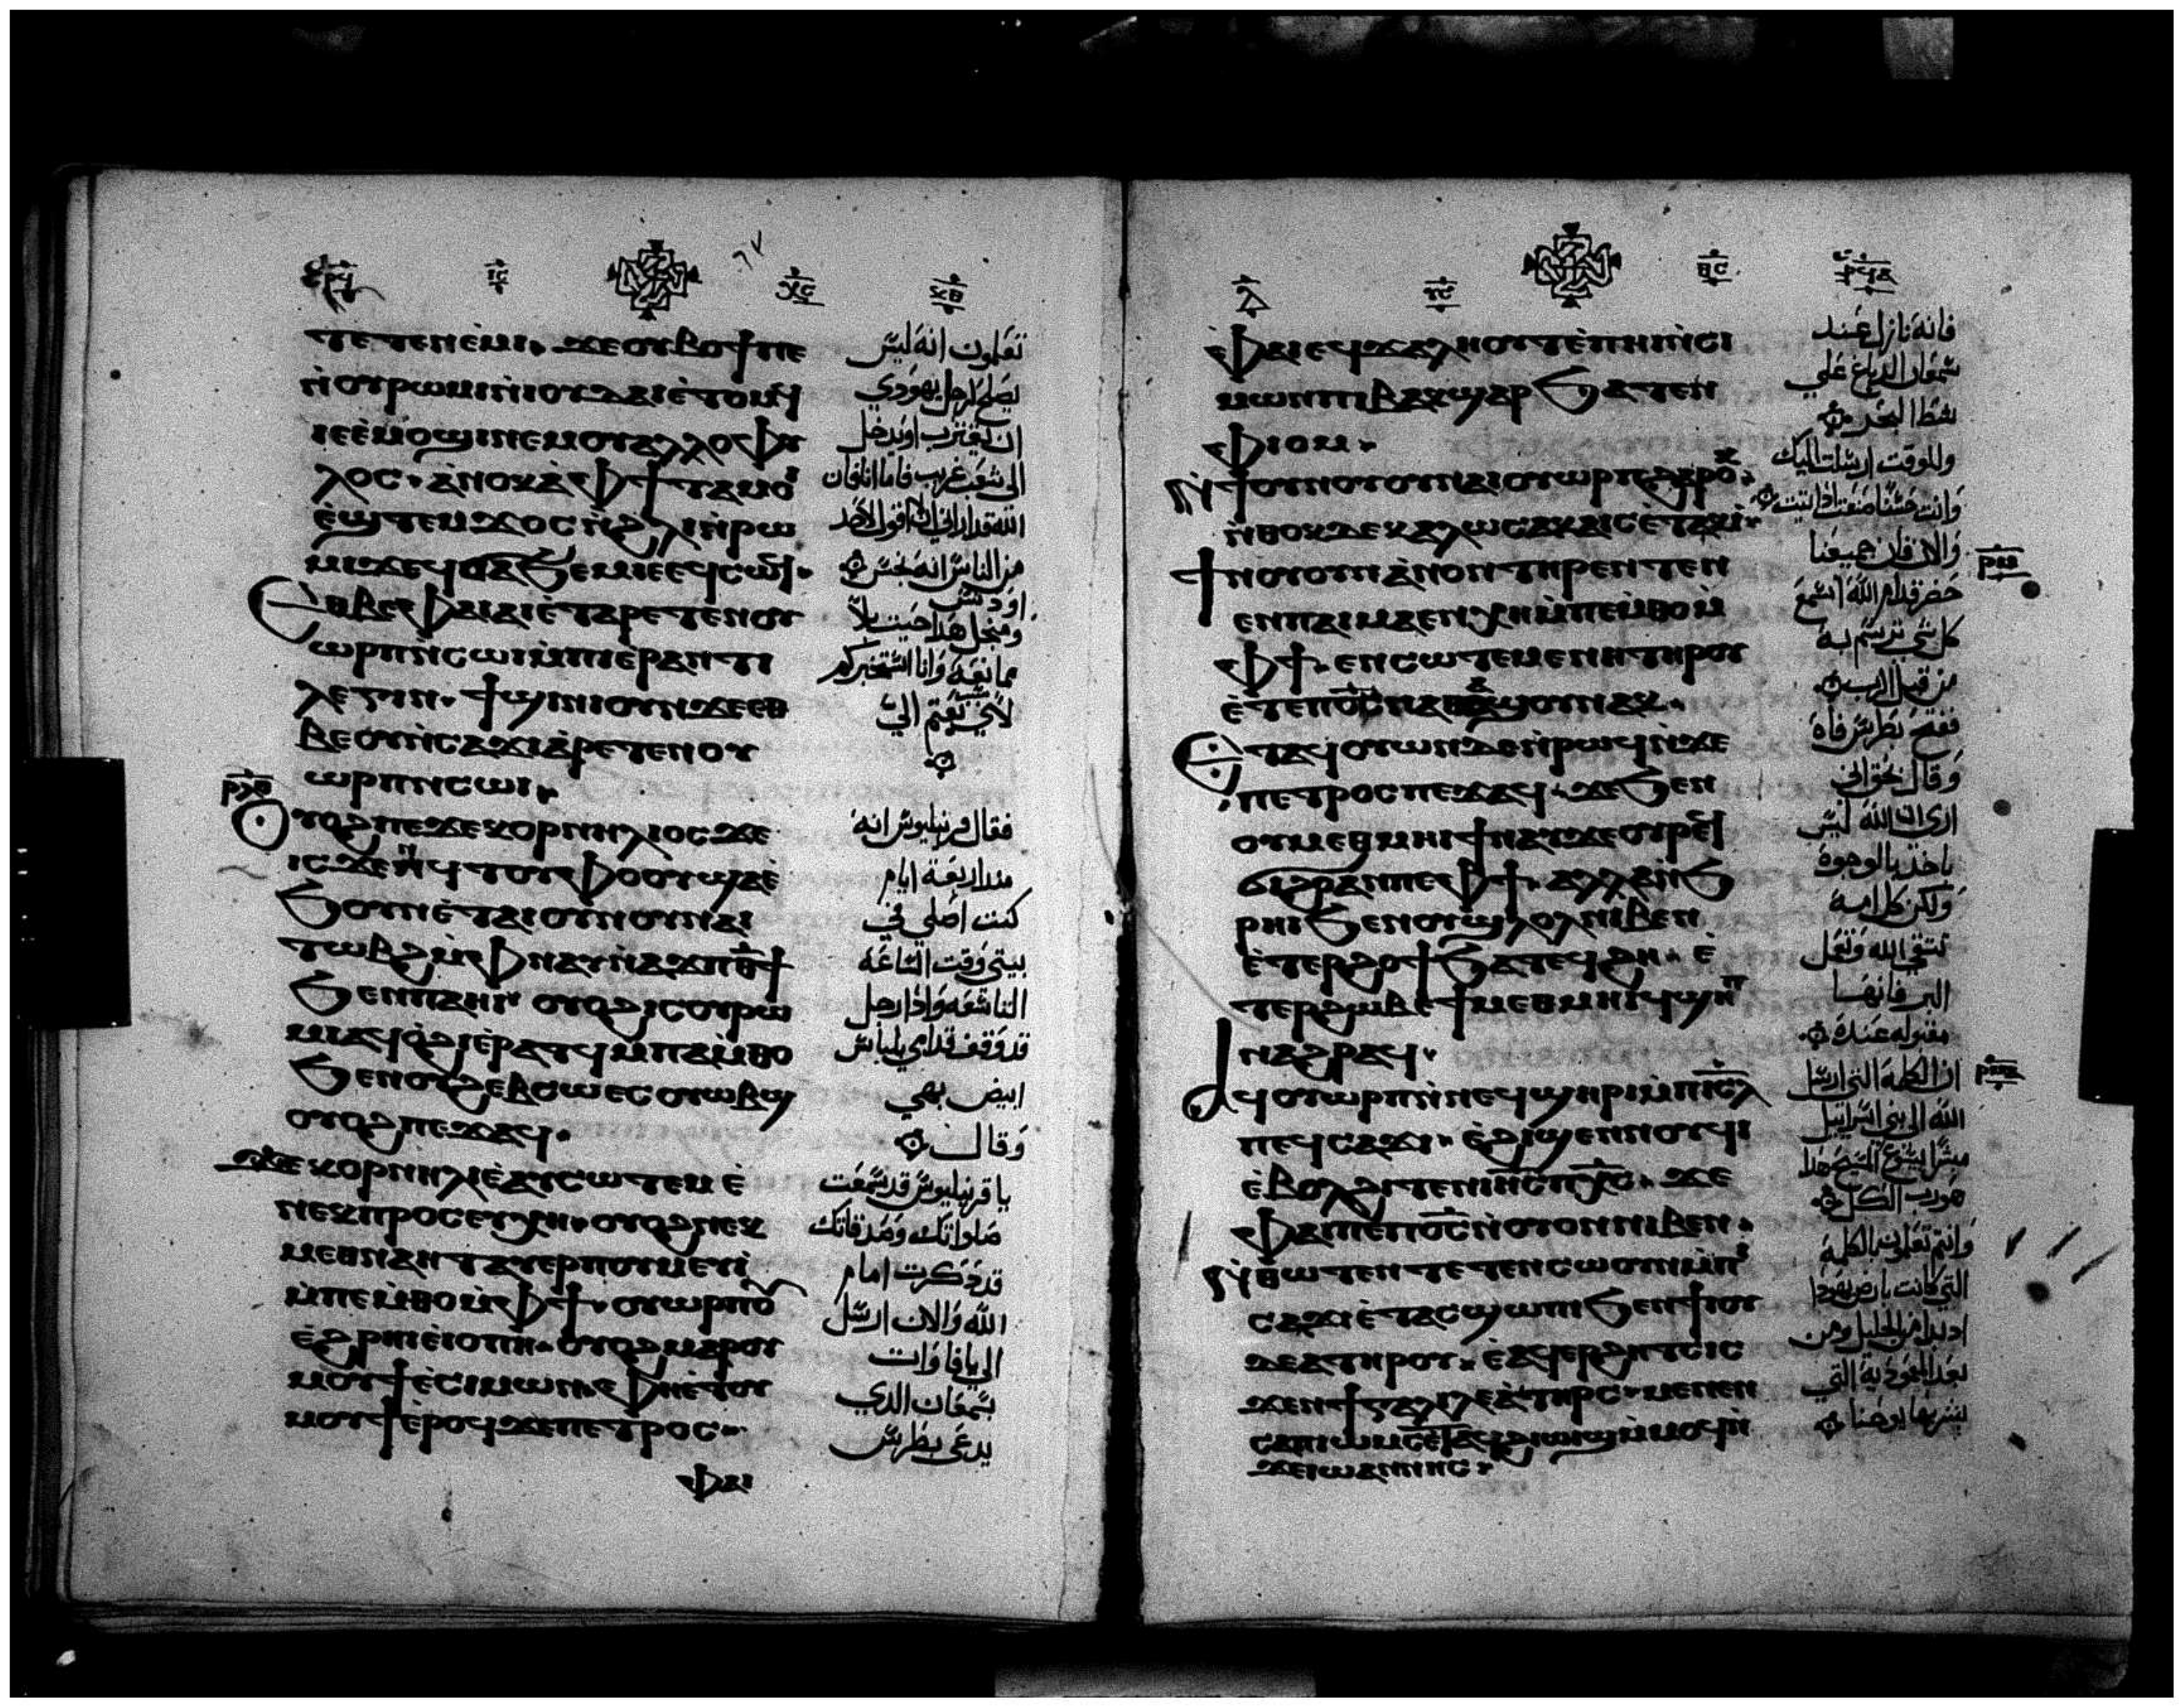 ⲧⲉⲧⲉⲛⲉ̀ⲙⲓ. ϫⲉⲟⲩⲃⲟϯⲡⲉ
ⲛ̀ⲟⲩⲣⲱⲙⲓⲛ̀ⲓⲟⲩⲇⲁⲓⲉ̀ⲧⲟⲙϥ
ⲓⲉⲉ̀ⲙⲟϣⲓⲛⲉⲙⲟⲩⲁⲗⲗⲟⲫⲩ
ⲗⲟⲥ. ⲁ̀ⲛⲟⲕⲁ̀ⲫϯⲧⲁⲙⲟ
ⲉ̀ϣⲧⲉⲙϫⲟⲥⲛ̀ϩⲗⲓⲛ̀ⲣⲱ
ⲙⲓϫⲉϥϭⲁϧⲉⲙⲓⲉⲉϥⲥⲱϥ.
Ⲉⲑⲃⲉⲫⲁⲓⲁⲓⲉ̀ⲧⲁⲣⲉⲧⲉⲛⲟⲩ
ⲱⲣⲡⲛ̀ⲥⲱⲓⲙ̀ⲡⲓⲉⲣⲁⲛⲧⲓ
ⲗⲉⲅⲓⲛ. ϯϣⲓⲛⲓⲟⲩⲛϫⲉⲉⲑ
ⲃⲉⲟⲩⲛ̀ⲥⲁϫⲓⲁ̀ⲣⲉⲧⲉⲛⲟⲩ
ⲱⲣⲡⲛ̀ⲥⲱⲓ.
Ⲟⲩⲟϩⲡⲉϫⲉⲕⲟⲣⲛⲏⲗⲓⲟⲥϫⲉ
ⲓⲥϫⲉⲛϥⲧⲟⲩⲫⲟⲟⲩϣⲁⲉ̀
ϧⲟⲩⲛⲉ̀ⲧⲁⲓⲟⲩⲛⲟⲩⲛⲁⲓ
ⲧⲱⲃϩⲙ̀ⲫⲛⲁⲩⲛ̀ⲁϫⲡⲑ̅ϯ
ϧⲉⲛⲡⲁⲏⲓ ⲟⲩⲟϩⲓⲥⲟⲩⲣⲱ
ⲙⲓⲁϥⲟ̀ϩⲓⲉ̀ⲣⲁⲧϥⲙ̀ⲡⲁⲙ̀ⲑⲟ
ϧⲉⲛⲟⲩϩⲉⲃⲥⲱⲉⲥⲟⲩⲱⲃϣ
ⲟⲩⲟϩⲡⲉϫⲁϥ.
ϫⲉⲕⲟⲣⲛⲏⲗⲓⲉ̀ⲁⲩⲥⲱⲧⲉⲙⲉ̀
ⲛⲉⲕⲡⲣⲟⲥⲉⲩⲭⲏ. ⲟⲩⲟϩⲛⲉⲕ
ⲙⲉⲑⲛⲁⲏⲧⲁⲩⲉⲣⲡⲟⲩⲙⲉⲩⲓ̀
ⲙ̀ⲡⲉⲙ̀ⲑⲟⲙ̀ⲫϯ. ⲟⲩⲱⲣⲡⲟ̅
ⲉ̀ϩⲣⲏⲓⲉ̀ⲓⲟⲡⲏ. ⲟⲩⲟϩⲙⲁⲣⲟⲩ
ⲙⲟⲩϯⲉ̀ⲥⲓⲙⲱⲛ. ⲫⲏⲉ̀ⲧⲟⲩ
ⲙⲟⲩϯⲉ̀ⲣⲟϥϫⲉⲡⲉⲧⲣⲟⲥ
ⲫⲁⲓ
تعلمون انه ليس
يصلح لرجل يهودي
ان يقترب او يدخل
الي شعب غريب فاما انا فان
الله قد اراني ان لا اقول لاحد
من الناس انه نجس
او دنس
ومنجل هذا جيت بلا
ممانعة وانا استخبركم
لاي سبب بعثتم الي
فقال قرنيليوس انه
منذ اربعة ايام
كنت اصلي في
بيتي وقت الساعة
التاسعة واذا رجل
قد وقف قدامي بلباس
ابيض بهي
وقال
يا قرنيليوس قد سمعت
صلواتك وصدقاتك
قد ذكرت امام
الله والان ارسل
الي يافا وات
بسمعان الذي
يدعي بطرس
ⲫⲁⲓⲉϥϫⲁⲗⲏⲟⲩⲧⲉ̀ⲡⲏⲓⲛ̀ⲥⲓ
ⲙⲱⲛⲡⲓⲃⲁⲕϣⲁⲣ ϧⲁⲧⲉⲛ
ⲫⲓⲟⲙ.
Ϯⲟⲩⲛⲟⲩⲟⲩⲛⲁⲓⲟⲩⲱⲣⲡϩⲁⲣⲟ̅.
ⲛ̀ⲑⲟⲕⲇⲉⲕⲁⲗⲱⲥⲁⲕⲁⲓⲥⲉ̀ⲧⲁⲕⲓ̀
Ϯⲛⲟⲩⲟⲩⲛⲁ̀ⲛⲟⲛⲧⲏⲣⲉⲛⲧⲉⲛ
ⲉⲛⲡⲁⲓⲙⲁⲉⲛⲭⲏⲙ̀ⲡⲉⲙ̀ⲑⲟⲙ̀
ⲫϯ. ⲉⲛⲥⲱⲧⲉⲙⲉⲛⲏⲧⲏⲣⲟⲩ
ⲉ̀ⲧⲉⲡⲟ̅ⲥ̅ⲛⲁⲑⲁϣⲟⲩⲛⲁⲕ.
Ⲉⲧⲁϥⲟⲩⲱⲛⲇⲉⲛ̀ⲣⲱϥⲛ̀ϫⲉ
ⲡⲉⲧⲣⲟⲥⲡⲉϫⲁϥ. ϫⲉϧⲉⲛ
ⲟⲩⲙⲉⲑⲙⲏⲓϯⲛⲁⲩϫⲉⲟⲩⲣⲉϥ
ϭⲓϩⲣⲁⲛⲡⲉⲫϯ. ⲁⲗⲗⲁⲛ̀ϧ
ⲣⲏⲓϧⲉⲛⲟⲩϣⲗⲟⲗⲛⲓⲃⲉⲛ
ⲉ̀ⲧⲉⲣϩⲟϯϧⲁⲧⲉϥϩⲏ. ⲉ̀
ⲧⲉⲣϩⲱⲃⲉ̀ϯⲙⲉⲑⲙⲏⲓϥϣⲏⲡ
ⲛⲁϩⲣⲁϥ.
Ⲁϥⲟⲩⲱⲣⲡⲛ̀ⲛⲉϥϣⲏⲣⲓⲙ̀ⲡⲓ̅ⲥ̅ⲗ̅
ⲡⲉϥⲥⲁϫⲓ. ⲉ̀ϩⲓϣⲉⲛⲛⲟⲩϥⲓ
ⲉ̀ⲃⲟⲗϩⲓⲧⲉⲛⲓⲏ̅ⲥ̅ⲡⲭ̅ⲥ̅. ϫⲉ
ⲫⲁⲓⲡⲉⲡⲟ̅ⲥ̅ⲛ̀ⲟⲩⲟⲛⲛⲓⲃⲉⲛ.
Ⲛ̀ⲑⲱⲧⲉⲛⲧⲉⲧⲉⲛⲥⲱⲟⲩⲛⲙ̀ⲡ
ⲥⲁϫⲓⲉ̀ⲧⲁϥϣⲱⲡⲓϧⲉⲛϯⲓⲟⲩ
ⲇⲉⲁⲧⲏⲣⲟⲩ. ⲉ̀ⲁϥⲉⲣϩⲏⲧⲥⲓⲥ
ϫⲉⲛϯⲅⲁⲗⲓⲗⲉⲁ̀ⲧⲏⲣⲥ. ⲙⲉⲛⲉⲛ
ⲥⲁⲡⲓⲱⲙⲥⲉ̀ⲧⲁϥϩⲓⲱⲓϣⲙ̀ⲙⲟϥⲛ̀
ϫⲉⲓⲱⲁⲛⲛⲏⲥ.
فانه نازل عند
سمعان الدباغ علي
شط البحر
وللوقت ارسلت اليك
وانت حسنًا صنعت اذ اتيت
والان فان جميعنا
حضر قدام الله لنسمع
كل شي ترسم به
من قبل الرب
ففتح بطرس فاه
وقال بحق اني
اري ان الله ليس
ياخذ بالوجوه
ولكن كل امه
تتقي الله وتعمل
البر فانها
مقبوله عنده
ان الكلمة التي ارسل
الله الي بني اسراييل
مبشرًا بيسوع المسيح هذا
هو رب الكل
وانتم تعلمون بالكلمة
التي كانت بارض يهوذا
اذ بدا من الجليل ومن
بعد المعموذية التي
بشر بها يوحنا